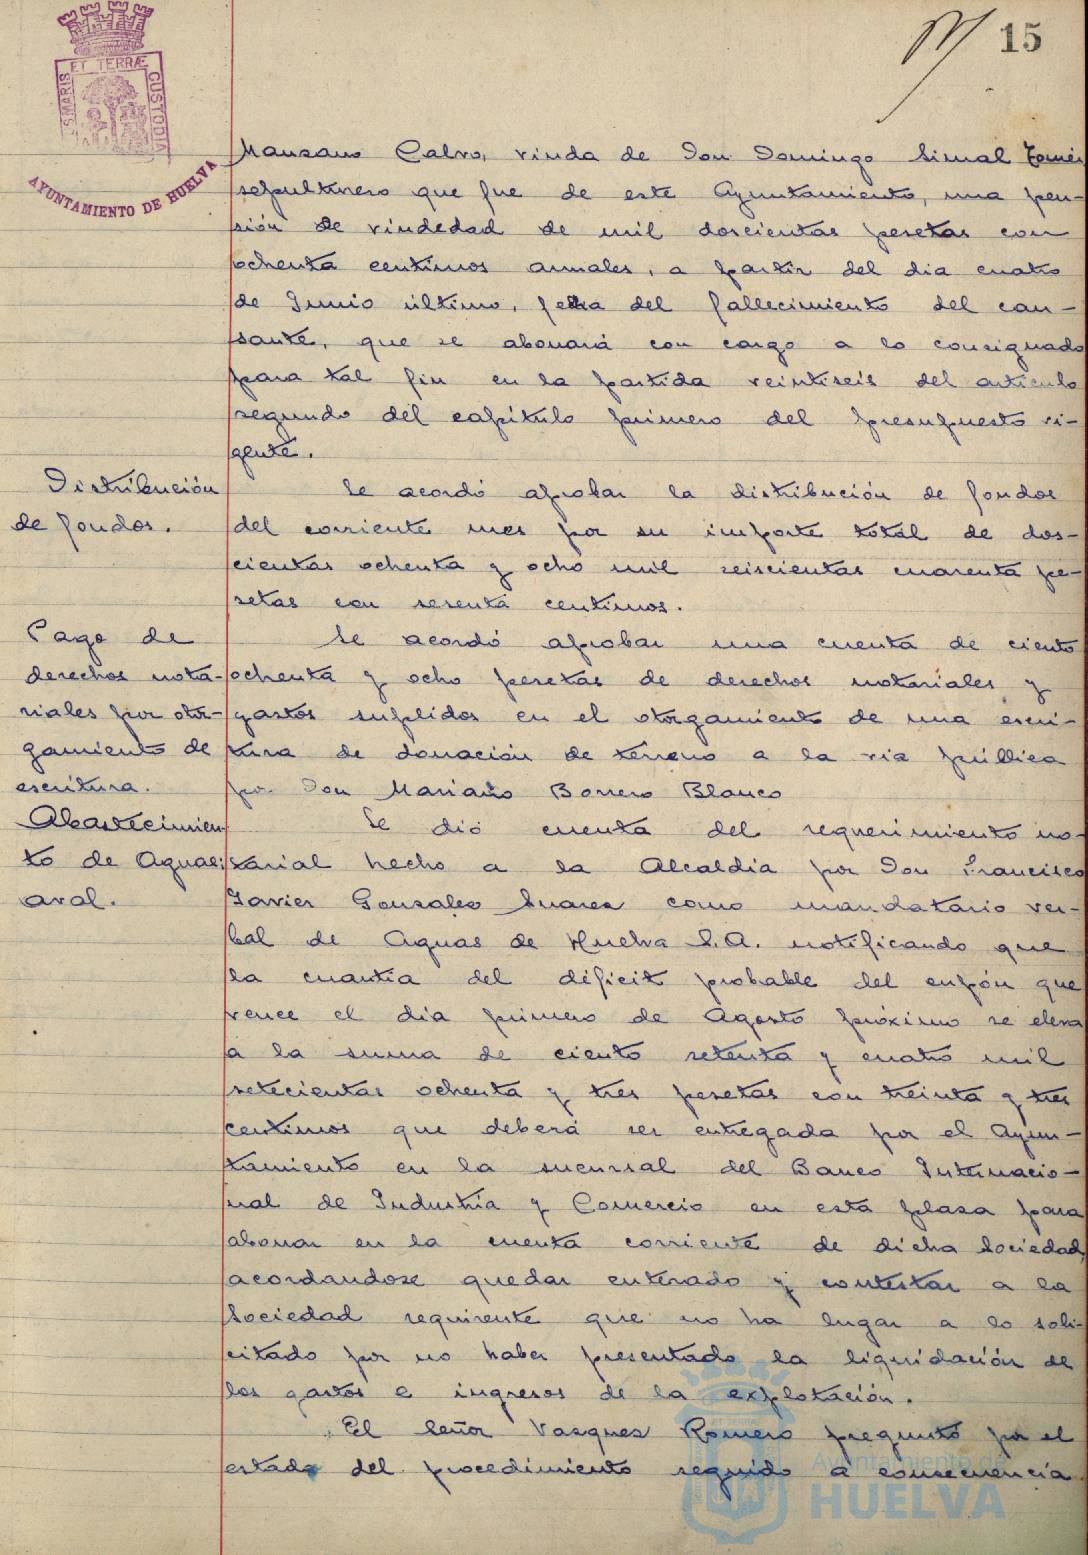 15
S MARIS ET TERRÆ CUSTODIA
AYUNTAMIENTO DE HUELVA
Manzano Calvo, viuda de Don Domingo
sepulturero que fue de este Ayuntamiento, una pen-
sión de viudedad de mil doscientas pesetas con
ochenta centimos anuales, a partir del dia cuatro
de Junio último, fecha del fallecimiento del cau-
sante, que se abonará con cargo a lo consignado
para tal fin en la partida veintiseis del artículo
segundo del capítulo primero del presupuesto vi-
gente.
Distribución
de fondos.
Se acordó aprobar la distribución de fondos
del corriente mes por su importe total de dos-
cientas ochenta y ocho mil seiscientas cuarenta pe-
setas con sesenta centimos.
Pago de
derechos nota-
riales por otor-
gamiento de
escritura.
Se acordó aprobar una cuenta de ciento
ochenta y ocho pesetas de derechos notariales y
gastos suplidos en el otorgamiento de una escri-
tura de donación de terreno a la via pública
por Don Mariano Borrero Blanco
Abastecimien
to de Aguas:
aval.
Se dió cuenta del requerimiento no-
tarial hecho a la Alcaldía por Don Francisco
Javier Gonzalez Suarez como mandatario ver-
bal de Aguas de Huelva S.A. notificando que
la cuantía del déficit probable del cupón que
vence el dia primero de Agosto próximo se eleva
a la suma de ciento setenta y cuatro mil
setecientas ochenta y tres pesetas con treinta y tres
centimos que deberá ser entregada por el Ayun-
tamiento en la sucursal del Banco Internacio-
nal de Industria y Comercio en esta plaza para
abonar en la cuenta corriente de dicha Sociedad,
acordandose quedar enterado y contestar a la
Sociedad requirente que no ha lugar a lo soli-
citado por no haber presentado la liquidación de
los gastos e ingresos de la explotación.
El Señor Vazquez Romero preguntó por el
estado del procedimiento seguido a consecuencia
Ayuntamiento de
HUELVA